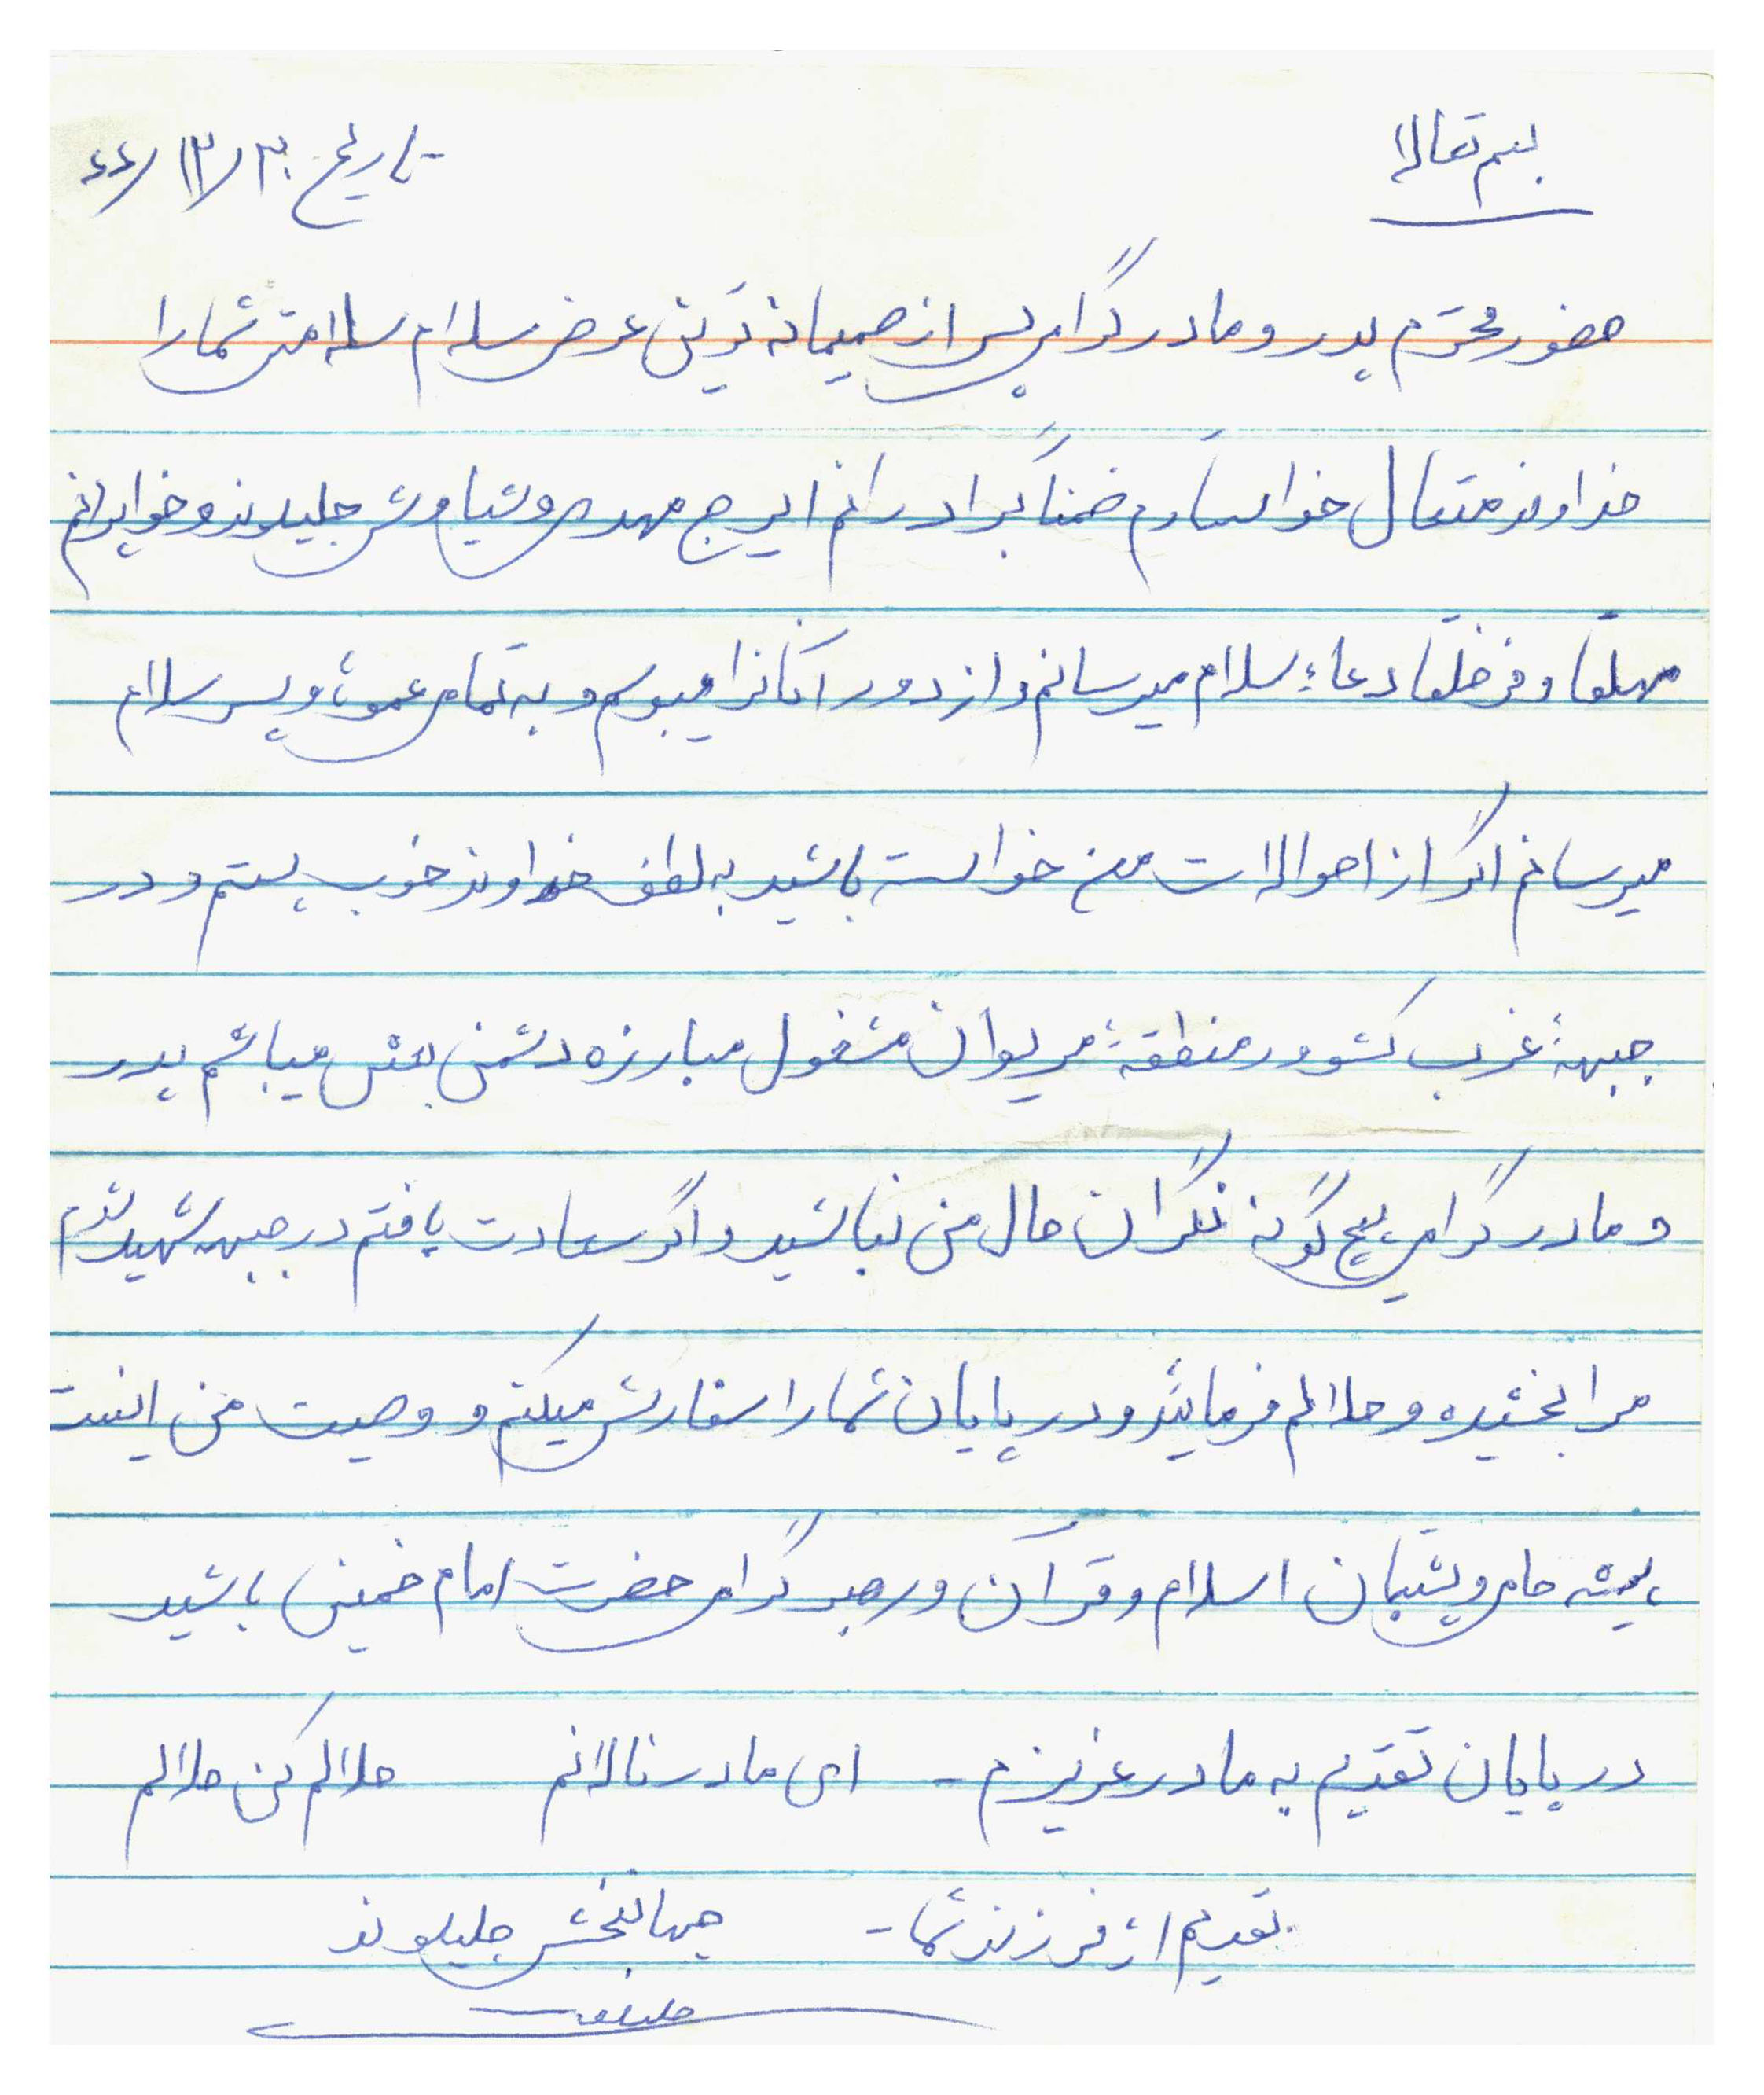 بسم تعالی
تاریخ ۶۶/۱۲/۳۰
حضور محترم پدر و مادر گرامی پس از صمیمانه ترین عرض سلام سلامتی شما را
خداوند متعال خواستارم ضمناً برادرانم ایرج مهدی و سیاوش جلیلوند و خواهرانم
مهلقا و فرخلقا دعاء سلام میرسانم و از دور آنانرا میبوسم و به تمامی عموها و پسر سلام
میرسانم اگر از احوالات من خواسته باشید به لطف خداوند خوب هستم و در
جبههٔ غرب کشور منطقهٔ مریوان مشغول مبارزه دشمن بعثی میباشم پدر
و مادر گرامی هیچ گونه نگران حال من نباشید و اگر سعادت یافتم در جبهه شهید شدم
مرا بخشیده و حلالم فرمایید و در پایان شما را سفارش میکنم و وصیت من اینست
همیشه حامی و پشتبان اسلام و قرآن و رهبر گرامی حضرت امام خمینی باشید
در پایان تقدیم به مادر عزیزم - ای مادر نالانم حلالم کن حلالم
تقدیم از فرزند شما - جهانبخش جلیلوند